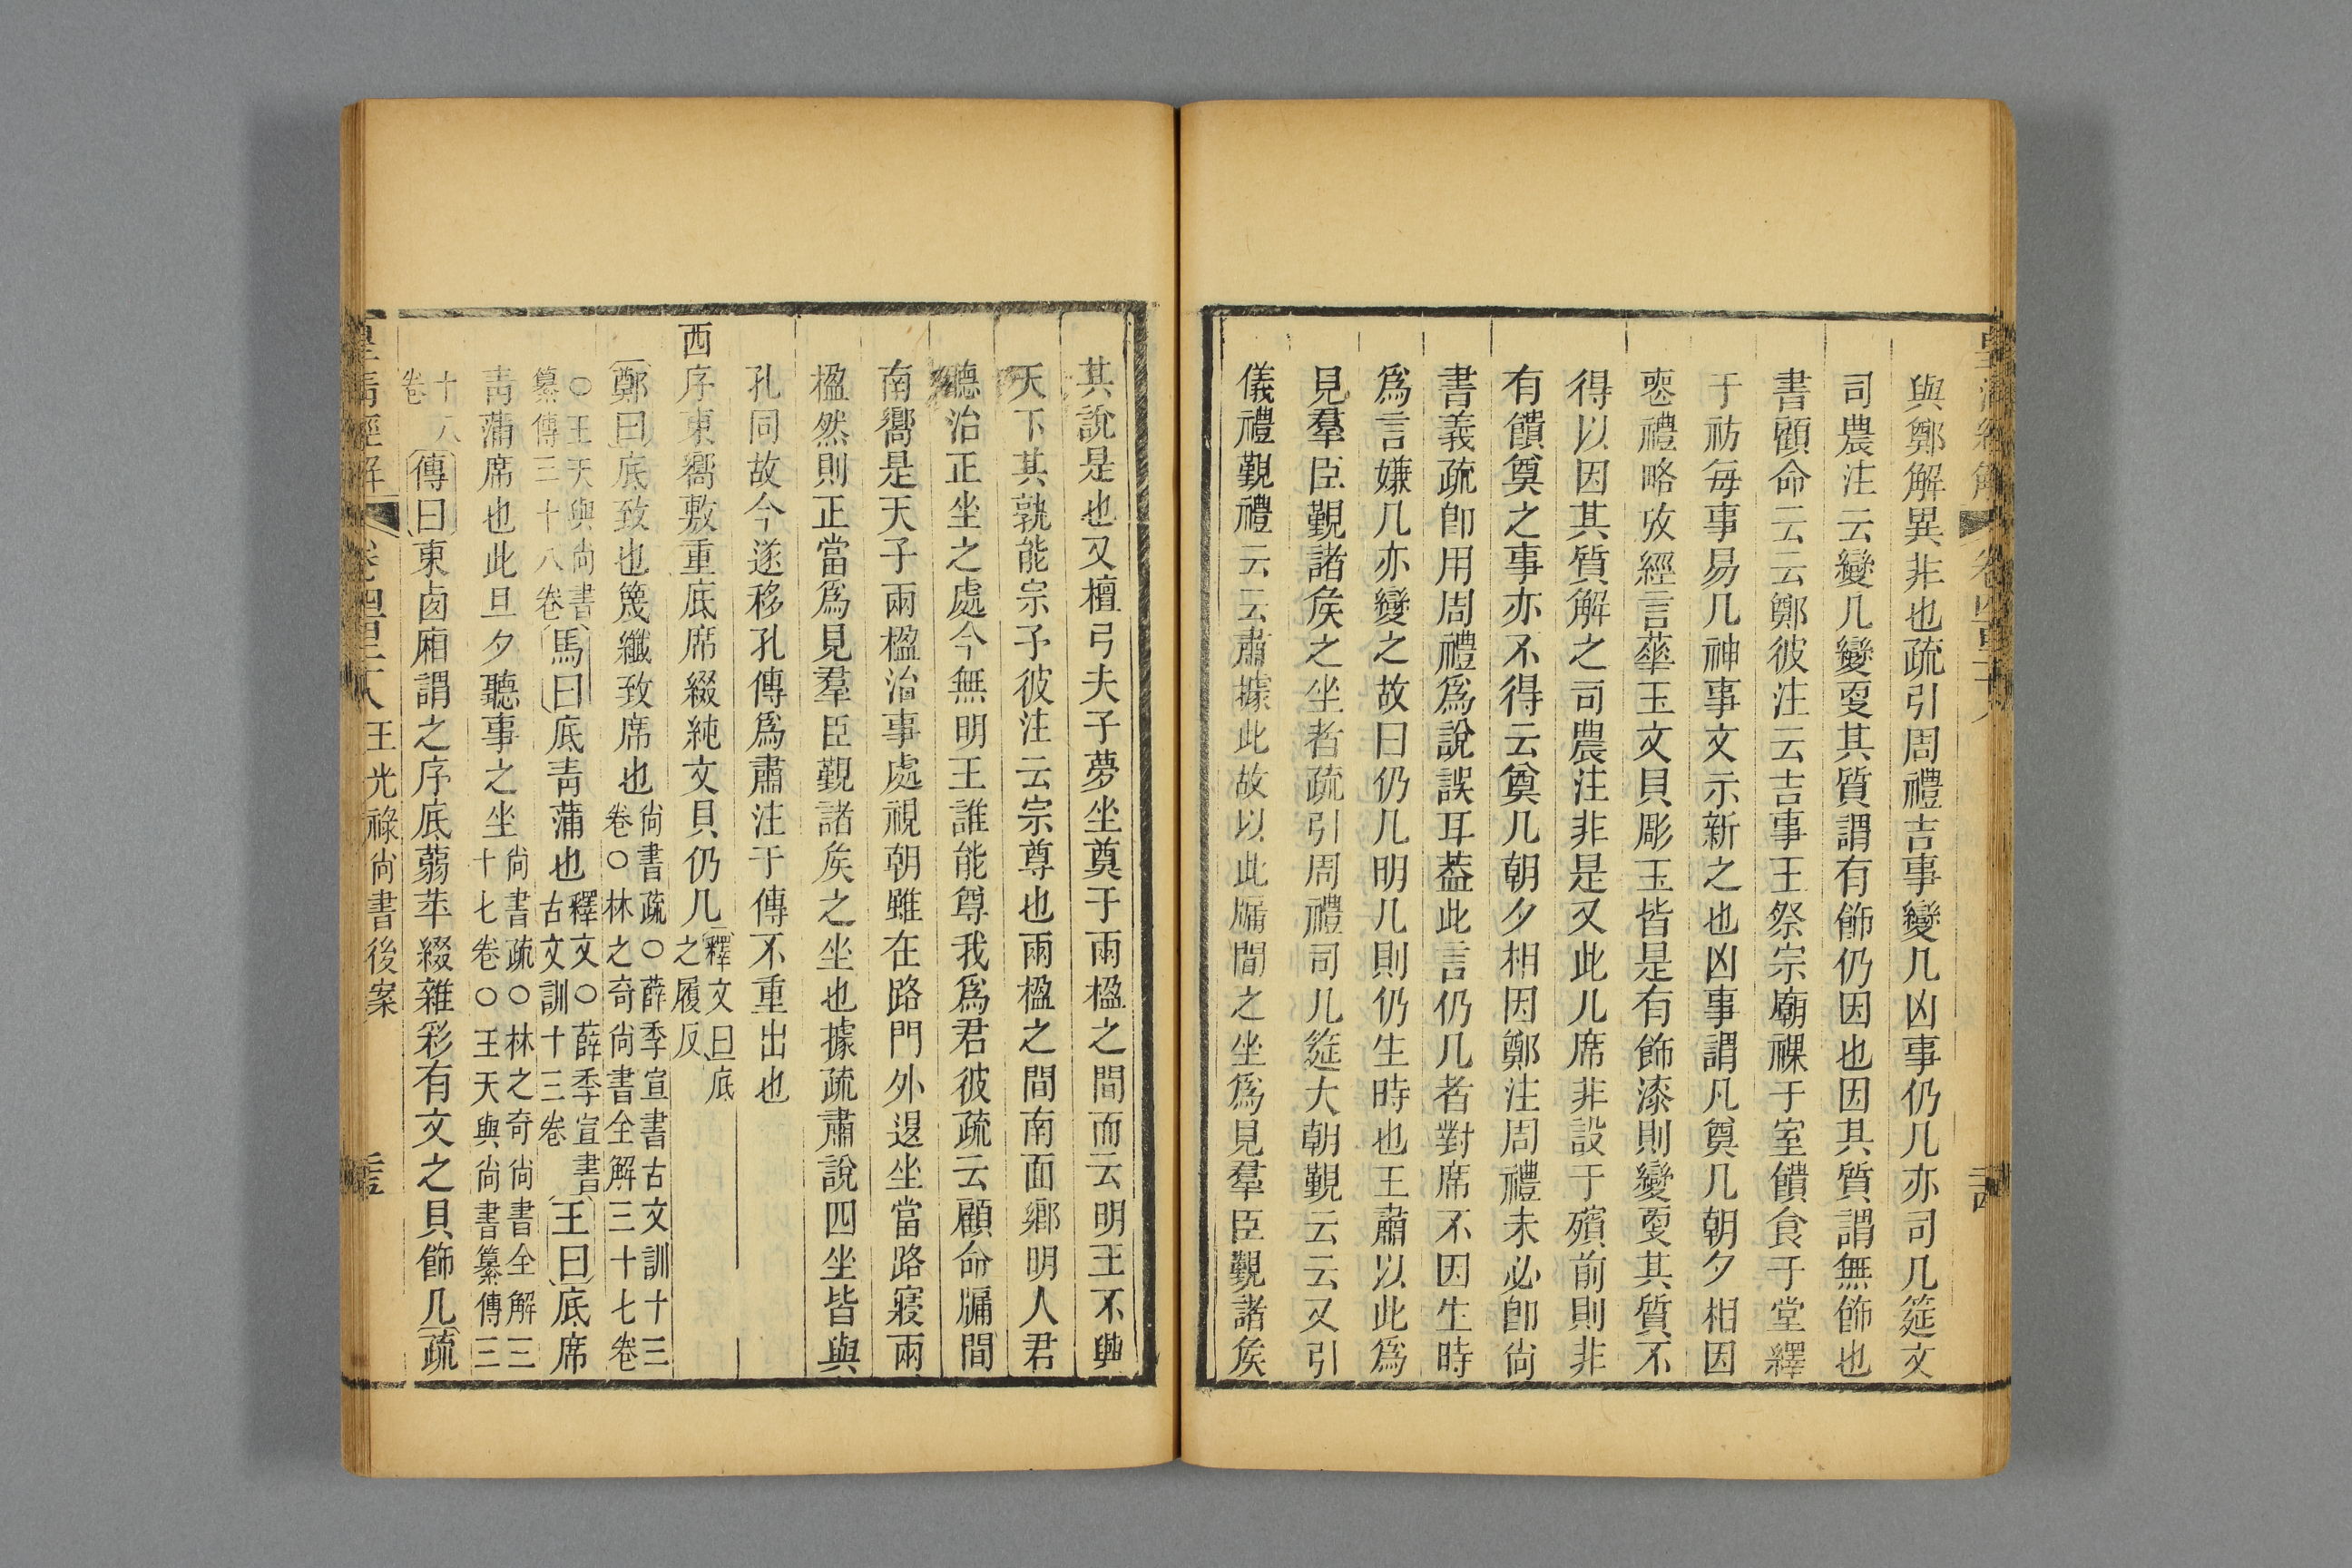 與鄭解異非也疏引周禮吉事變几凶事仍几亦司几筵文
司農注云變几變更其質謂有飾仍因也因其質謂無飾也
書顧命云云鄭彼注云吉事王祭宗廟祼于室饋食于堂繹
于祊每事易几神事文示新之也凶事謂凡奠几朝夕相因
喪禮略攷經言蕐玉文貝彫玉皆是有飾漆則變更其質不
得以因其質解之司農注非是又此几席非設于殯前則非
有饋奠之事亦不得云奠几朝夕相因鄭注周禮未必卽尙
書義疏卽用周禮爲說誤耳葢此言仍几者對席不因生時
爲言嫌几亦變之故曰仍几明几則仍生時也王肅以此爲
見羣臣覲諸矦之坐者疏引周禮司几筵大朝覲云云又引
儀禮覲禮云云肅據此故以此牖間之坐爲見羣臣覲諸矦
其說是也又檀弓夫子夢坐奠于兩楹之間而云明王不興
天下其孰能宗予彼注云宗尊也兩楹之間南面鄉明人君
聽治正坐之處今無明王誰能尊我爲君彼疏云顧命牖間
南嚮是天子兩楹治事處視朝雖在路門外退坐當路寢兩
楹然則正當爲見羣臣覲諸矦之坐也據疏肅說四坐皆與
孔同故今遂移孔傳爲肅注于傳不重出也
西序東嚮敷重底席綴純文貝仍几釋文曰底之履反
鄭曰底致也篾纖致席也尙書疏○薛季宣書古文訓十三卷○林之奇尙書全解三十七卷
○王天與尙書纂傳三十八卷馬曰底靑蒲也釋文○薛季宣書古文訓十三卷王曰底席
靑蒲席也此旦夕聽事之坐尙書疏○林之奇尙書全解三十七卷○王天與尙書纂傳三
十八卷傳曰東西廂謂之序底蒻苹綴雜彩有文之貝飾几疏
皇淸經解 卷四百二十八 王光祿尙書後案